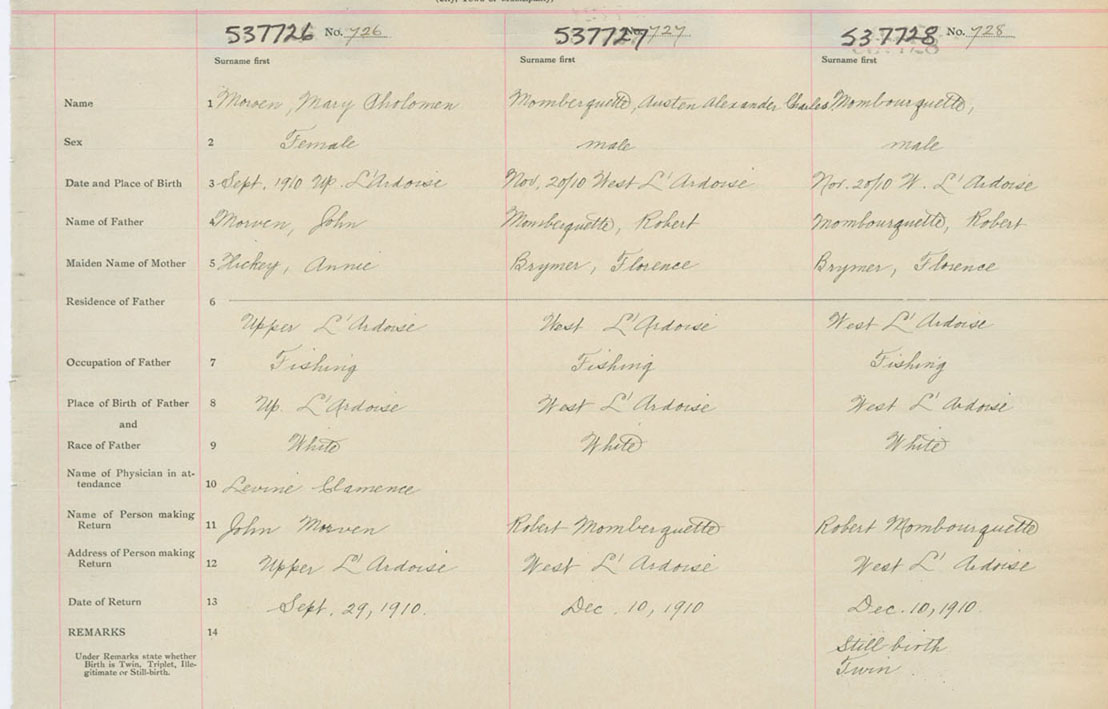 (City, Town or Municipality)
537726 No. 726 537727 No. 727 537728 No. 728
Surname first Surname first Surname first
Name 1 Morven, Mary Pholomen Momberquette, Austen Alexander Charles Mombourquette,
Sex 2 Female male male
Date and Place of Birth 3 Sept. 1910 Up. L'Ardoise Nov. 20/10 West L'Ardoise Nov. 20/10 W. L'Ardoise
Name of Father 4 Morven, John Momberquette, Robert Mombourquette, Robert
Maiden Name of Mother 5 Hickey, Annie Brymer, Florence Brymer, Florence
Residence of Father 6
Upper L'Ardoise West L'Ardoise West L'Ardoise
Occupation of Father 7 Fishing Fishing Fishing
Place of Birth of Father 8 Up. L'Ardoise West L'Ardoise West L'Ardoise
and
Race of Father 9 White White White
Name of Physician in at-
tendance 10 Levine Clamence
Name of Person making
Return 11 John Morven Robert Momberquette Robert Mombourquette
Address of Person making
Return 12 Upper L'Ardoise West L'Ardoise West L'Ardoise
Date of Return 13 Sept. 29, 1910. Dec. 10, 1910 Dec. 10, 1910.
REMARKS 14
Still birth
Twin
Under Remarks state whether
Birth is Twin, Triplet, Ille-
gitimate or Still-birth.